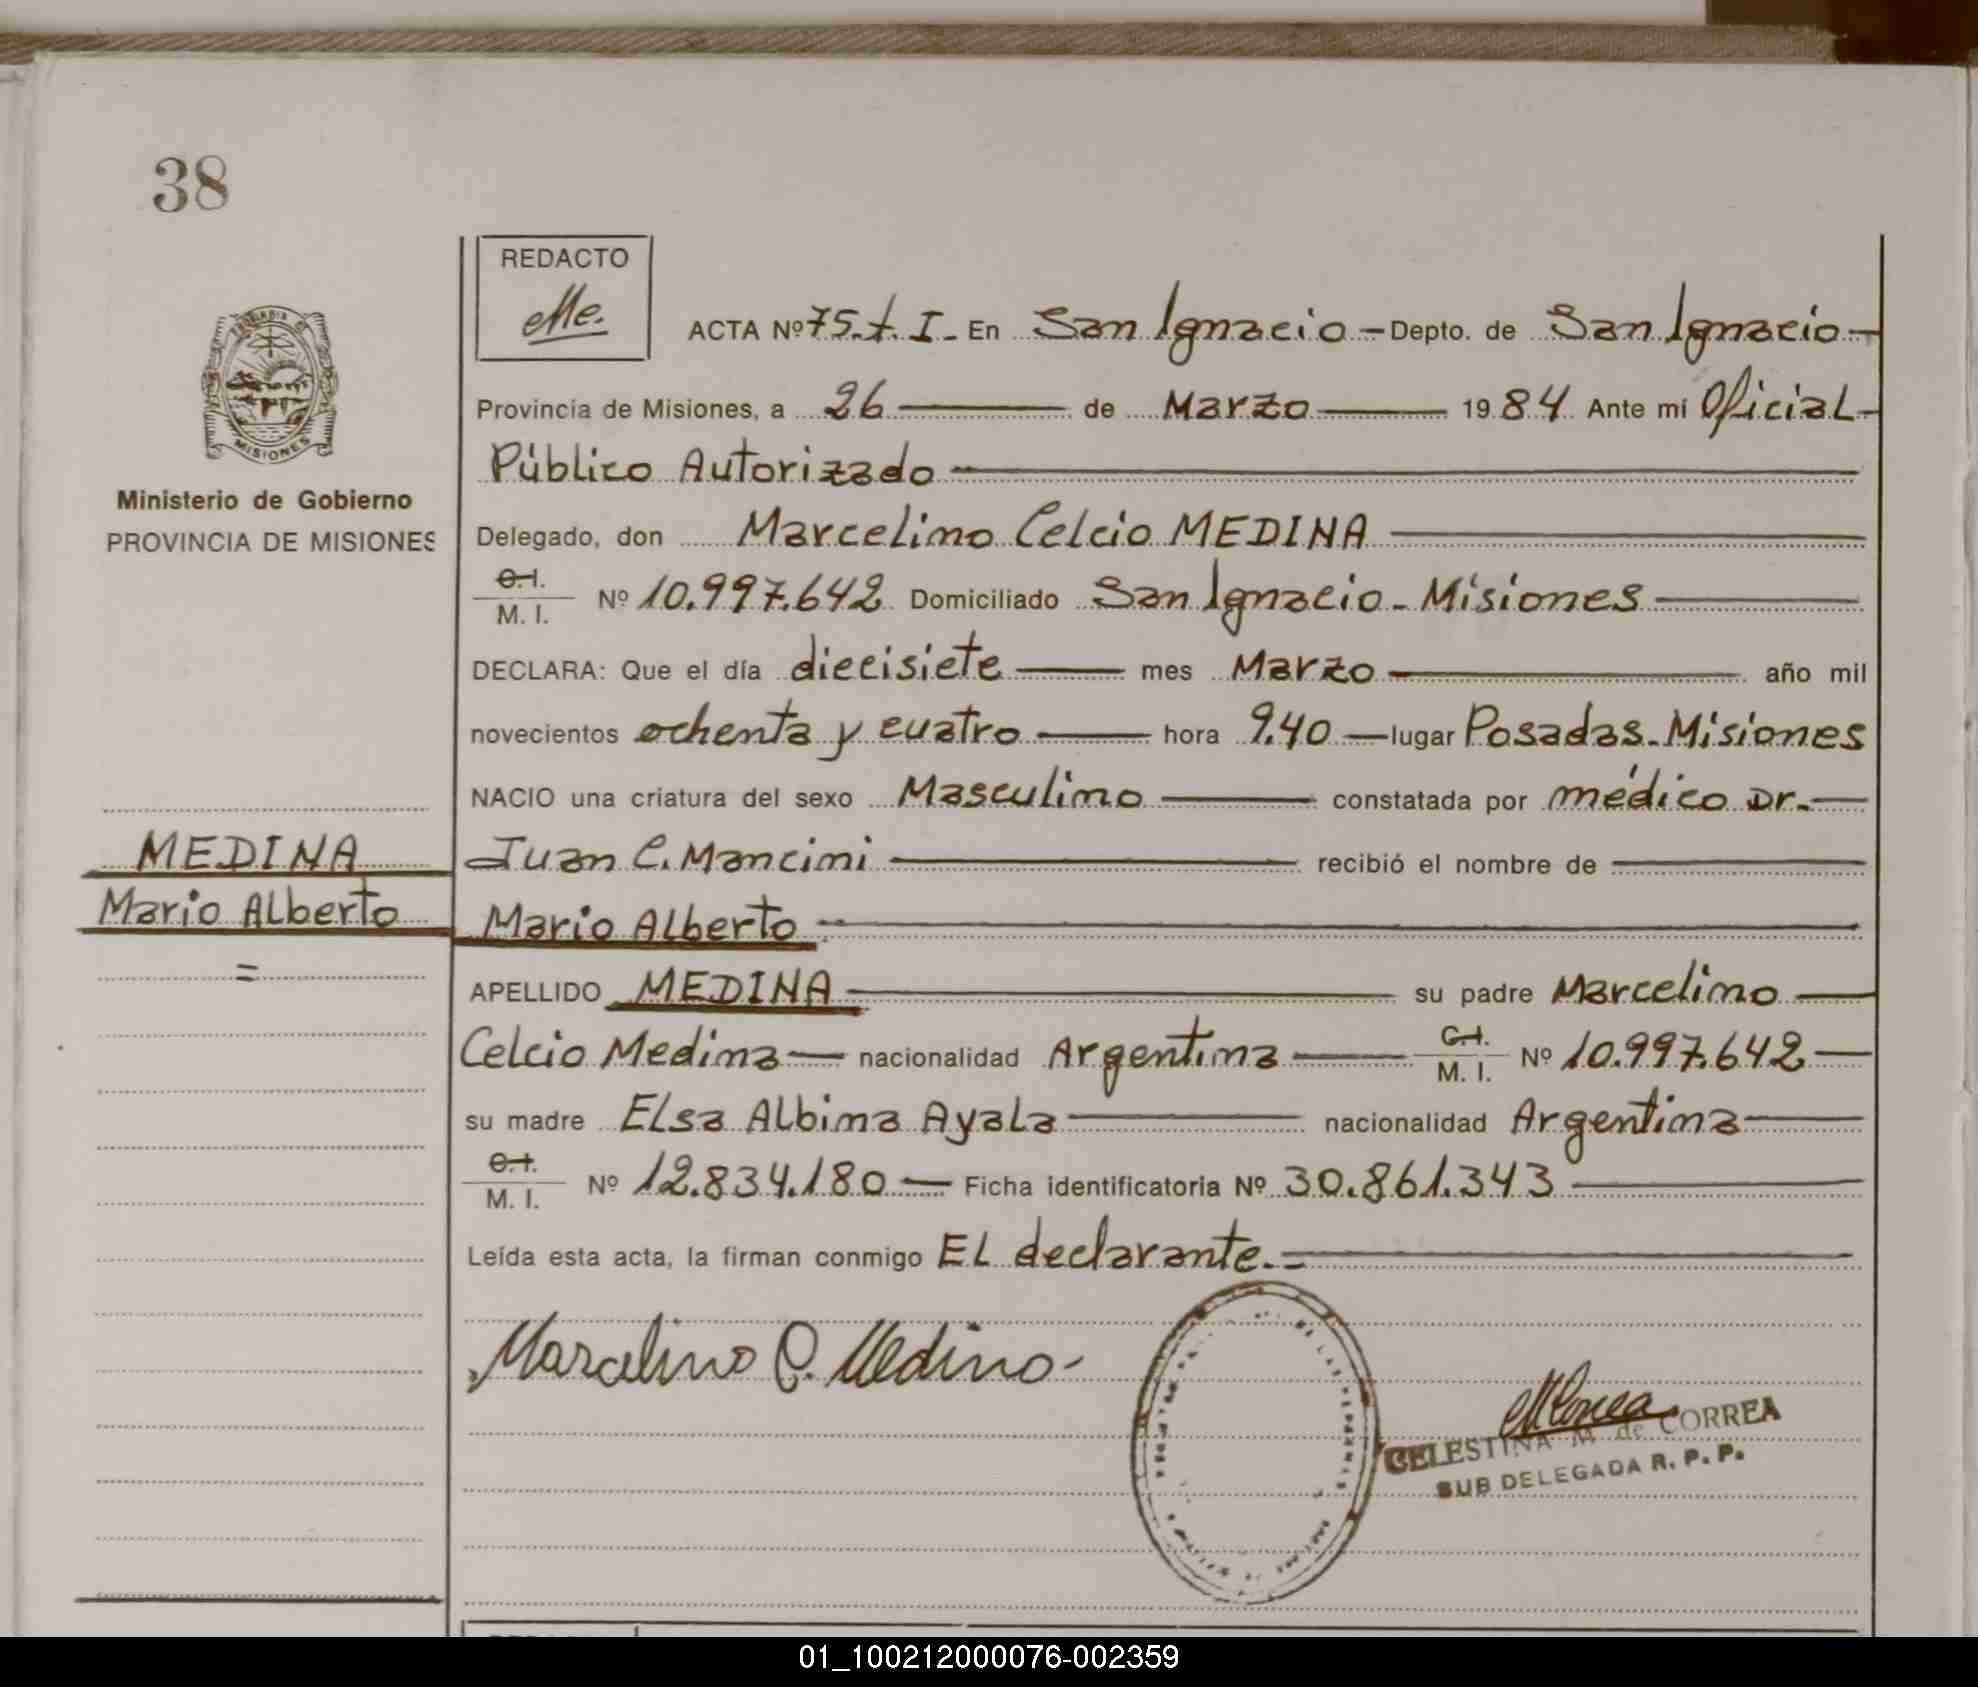 38
REDACTO
MISIONES
Ministerio de Gobierno
PROVINCIA DE MISIONES
ACTA Nº 75.t.I- En San Ignacio - Depto. de San Ignacio -
Provincia de Misiones, a 26 de Marzo 1984 Ante mi Oficial
Público Autorizado
Delegado, don Marcelino Celcio MEDINA
C.I. / M. I. Nº 10.997.642 Domiciliado San Ignacio - Misiones
DECLARA: Que el día diecisiete mes Marzo año mil
novecientos ochenta y cuatro hora 9.40 - lugar Posadas - Misiones
NACIO una criatura del sexo Masculino constatada por médico Dr.
Juan C. Mancini recibió el nombre de
MEDINA
Mario Alberto
=
Mario Alberto
APELLIDO MEDINA su padre Marcelino
Celcio Medina nacionalidad Argentina C.I. / M. I. Nº 10.997.642
su madre Elsa Albina Ayala nacionalidad Argentina
C.I. / M. I. Nº 12.834.180 Ficha identificatoria Nº 30.861.343
Leída esta acta, la firman conmigo EL declarante.
Marcelino C. Medina
CELESTINA M de CORREA
SUB DELEGADA R. P. P.
01_100212000076-002359